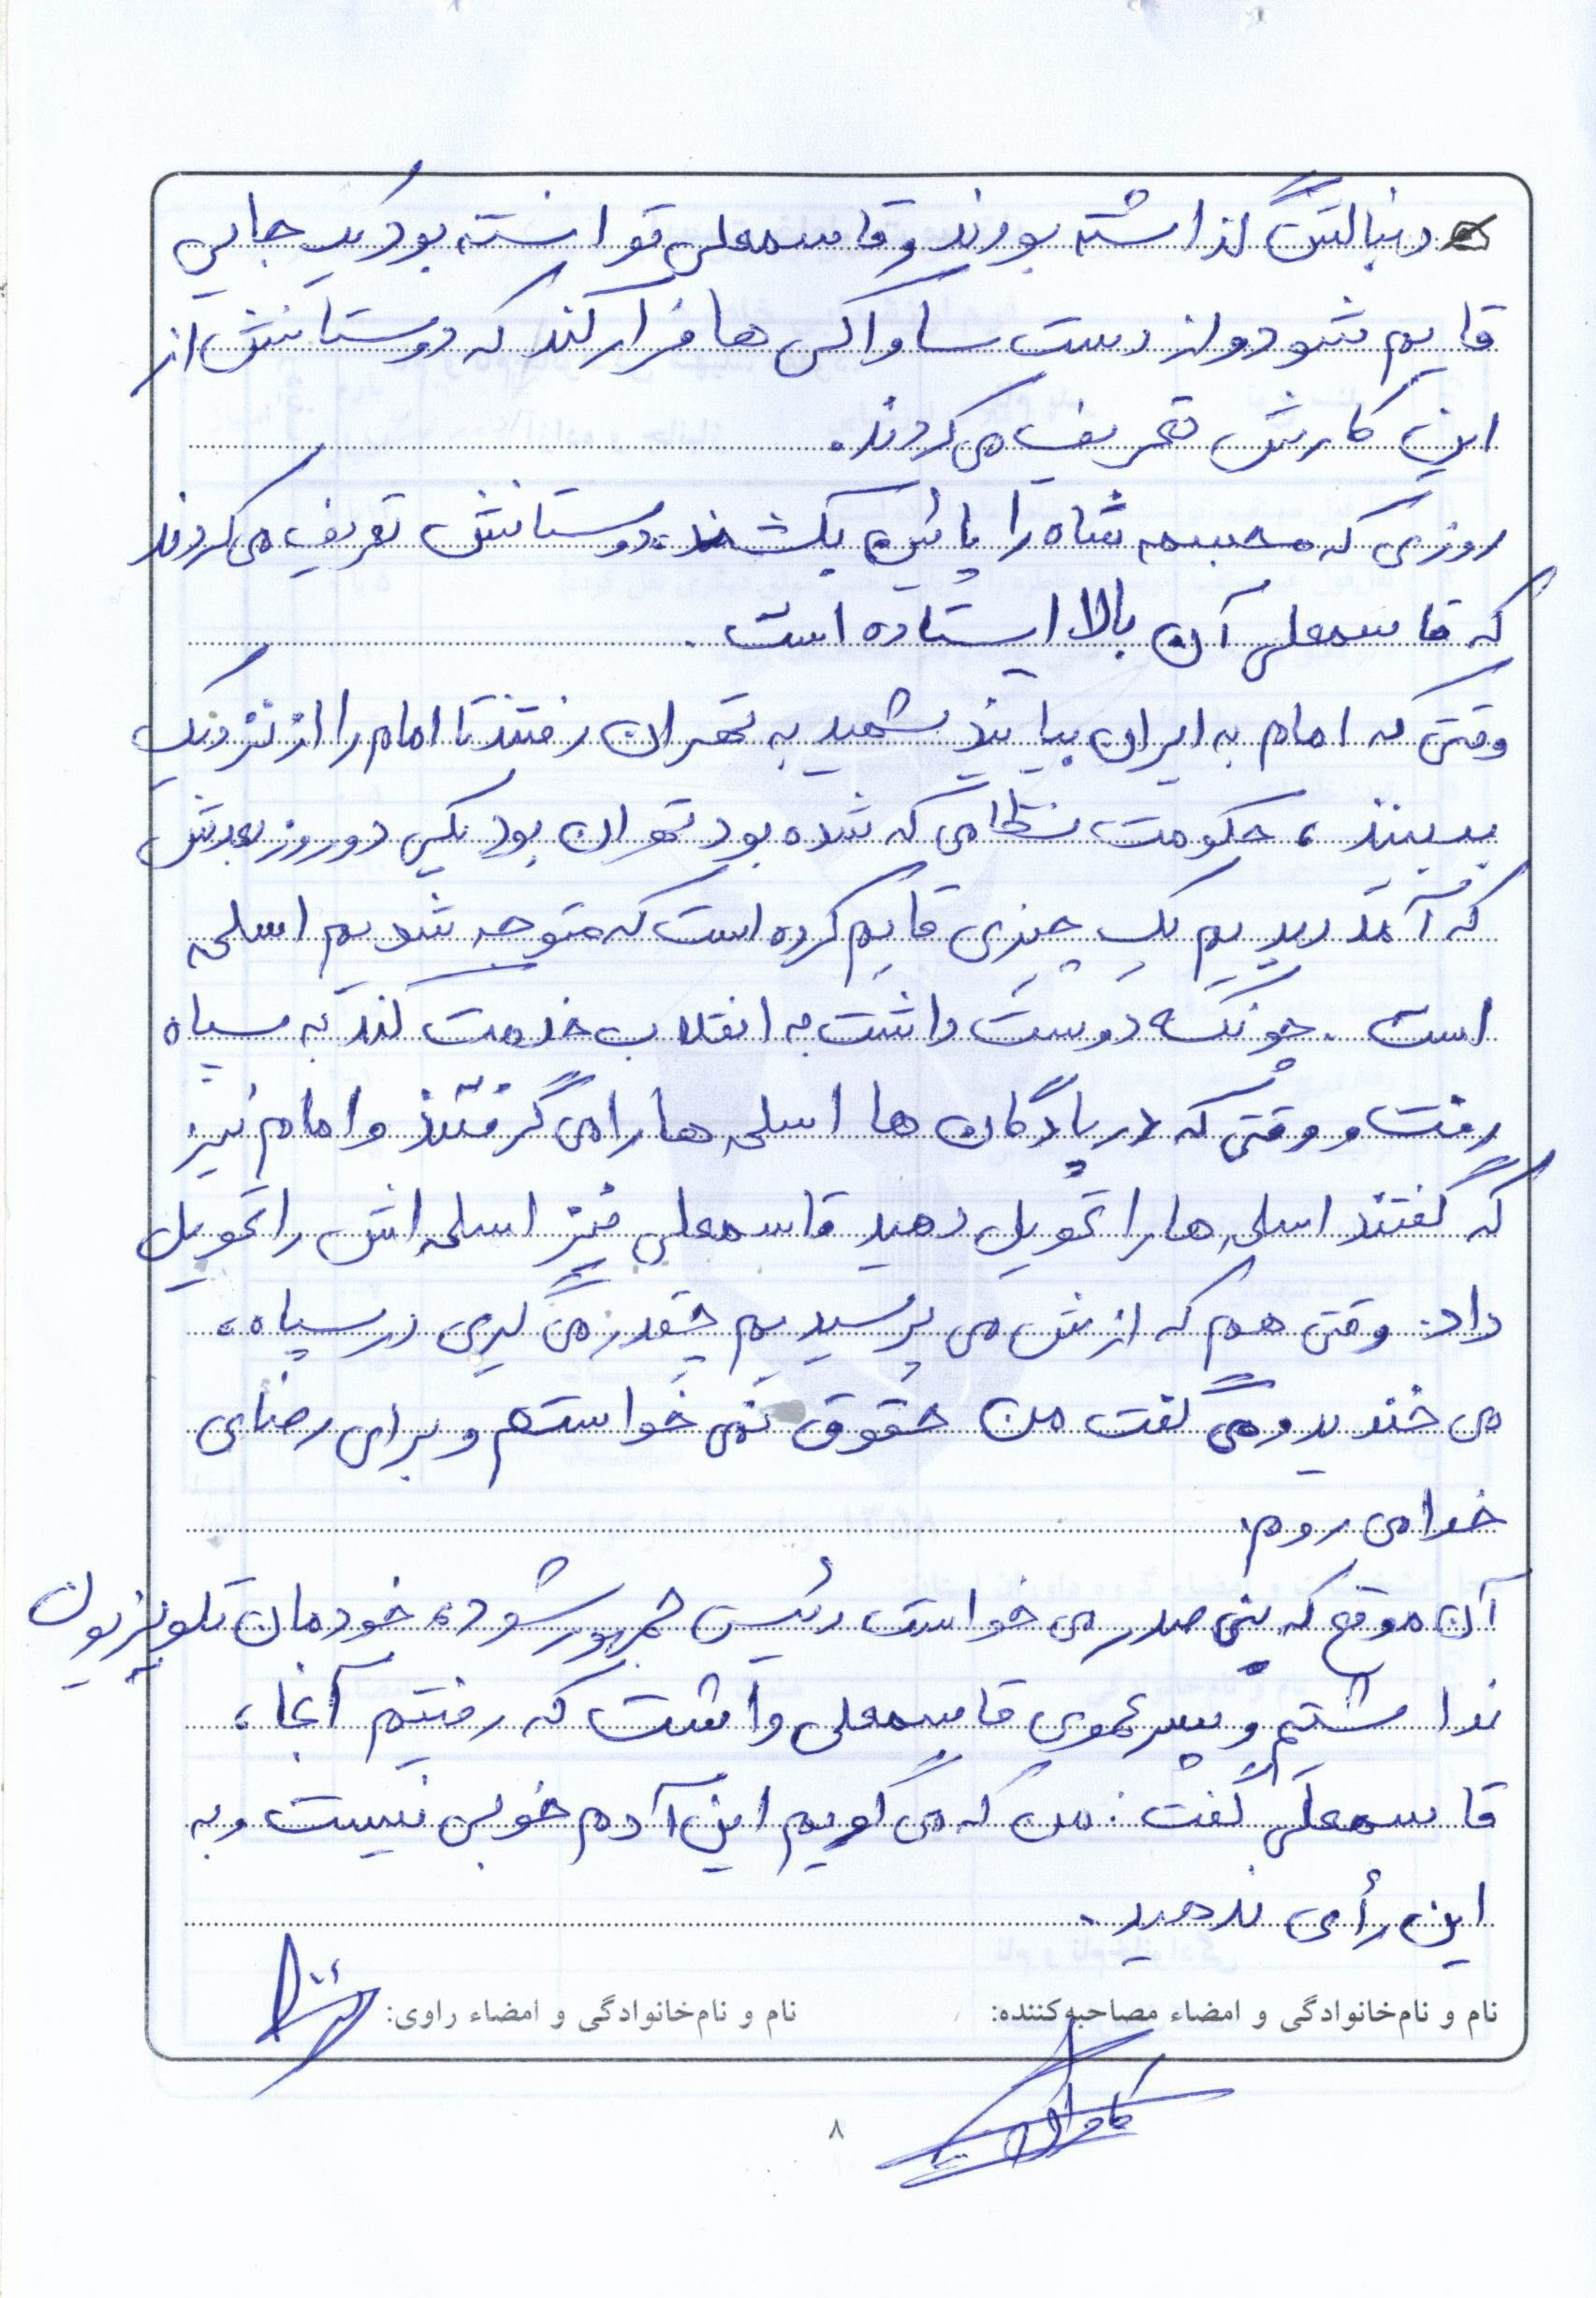 دنبالش گذاشته بودند و قاسمعلی توانسته بود یک جایی
قایم شود و از دست ساواکی ها فرار کند که دوستانش از
این کارش تعریف می کردند.
روزی که مجسمه شاه را پائین بکشند، دوستانش تعریف می کردند
که قاسمعلی آن بالا ایستاده است.
وقتی که امام به ایران بیایند شهید به تهران رفتند تا امام را از نزدیک
ببینند، حکومت نظامی که شده بود تهران بود یکی دو روز بعدش
که آمد دیدیم یک چیزی قایم کرده است که متوجه شدیم اسلحه
است. چونکه دوست داشت به انقلاب خدمت کند به سپاه
رفت و وقتی که در پادگان ها اسلحه ها را می گرفتند و امام نیز
که گفتند اسلحه ها را تحویل دهید قاسمعلی نیز اسلحه اش را تحویل
داد. وقتی هم که ازش می پرسیدیم چقدر می گیری در سپاه،
می خندید و می گفت من حقوق نمی خواستم و برای رضای
خدا می روم.
آن موقع که بنی صدر می خواست رئیس جمهور شود، خودمان تلویزیون
نداشتیم و پسر عموی قاسمعلی داشت که رفتیم آنجا،
قاسمعلی گفت: من که می گویم این آدم خوبی نیست و به
این رأی ندهید.
نام و نام‌خانوادگی و امضاء مصاحبه‌کننده: نام و نام‌خانوادگی و امضاء راوی:
۸